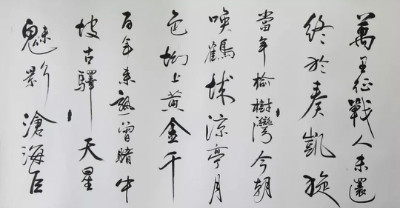 萬里征戰人未還
終於奏凱旋
當年榆樹灣今朝
喚鶴城涼亭月
色坳上黃金千
百年曾睹牛
坡古驛 天星
魅影滄海巨